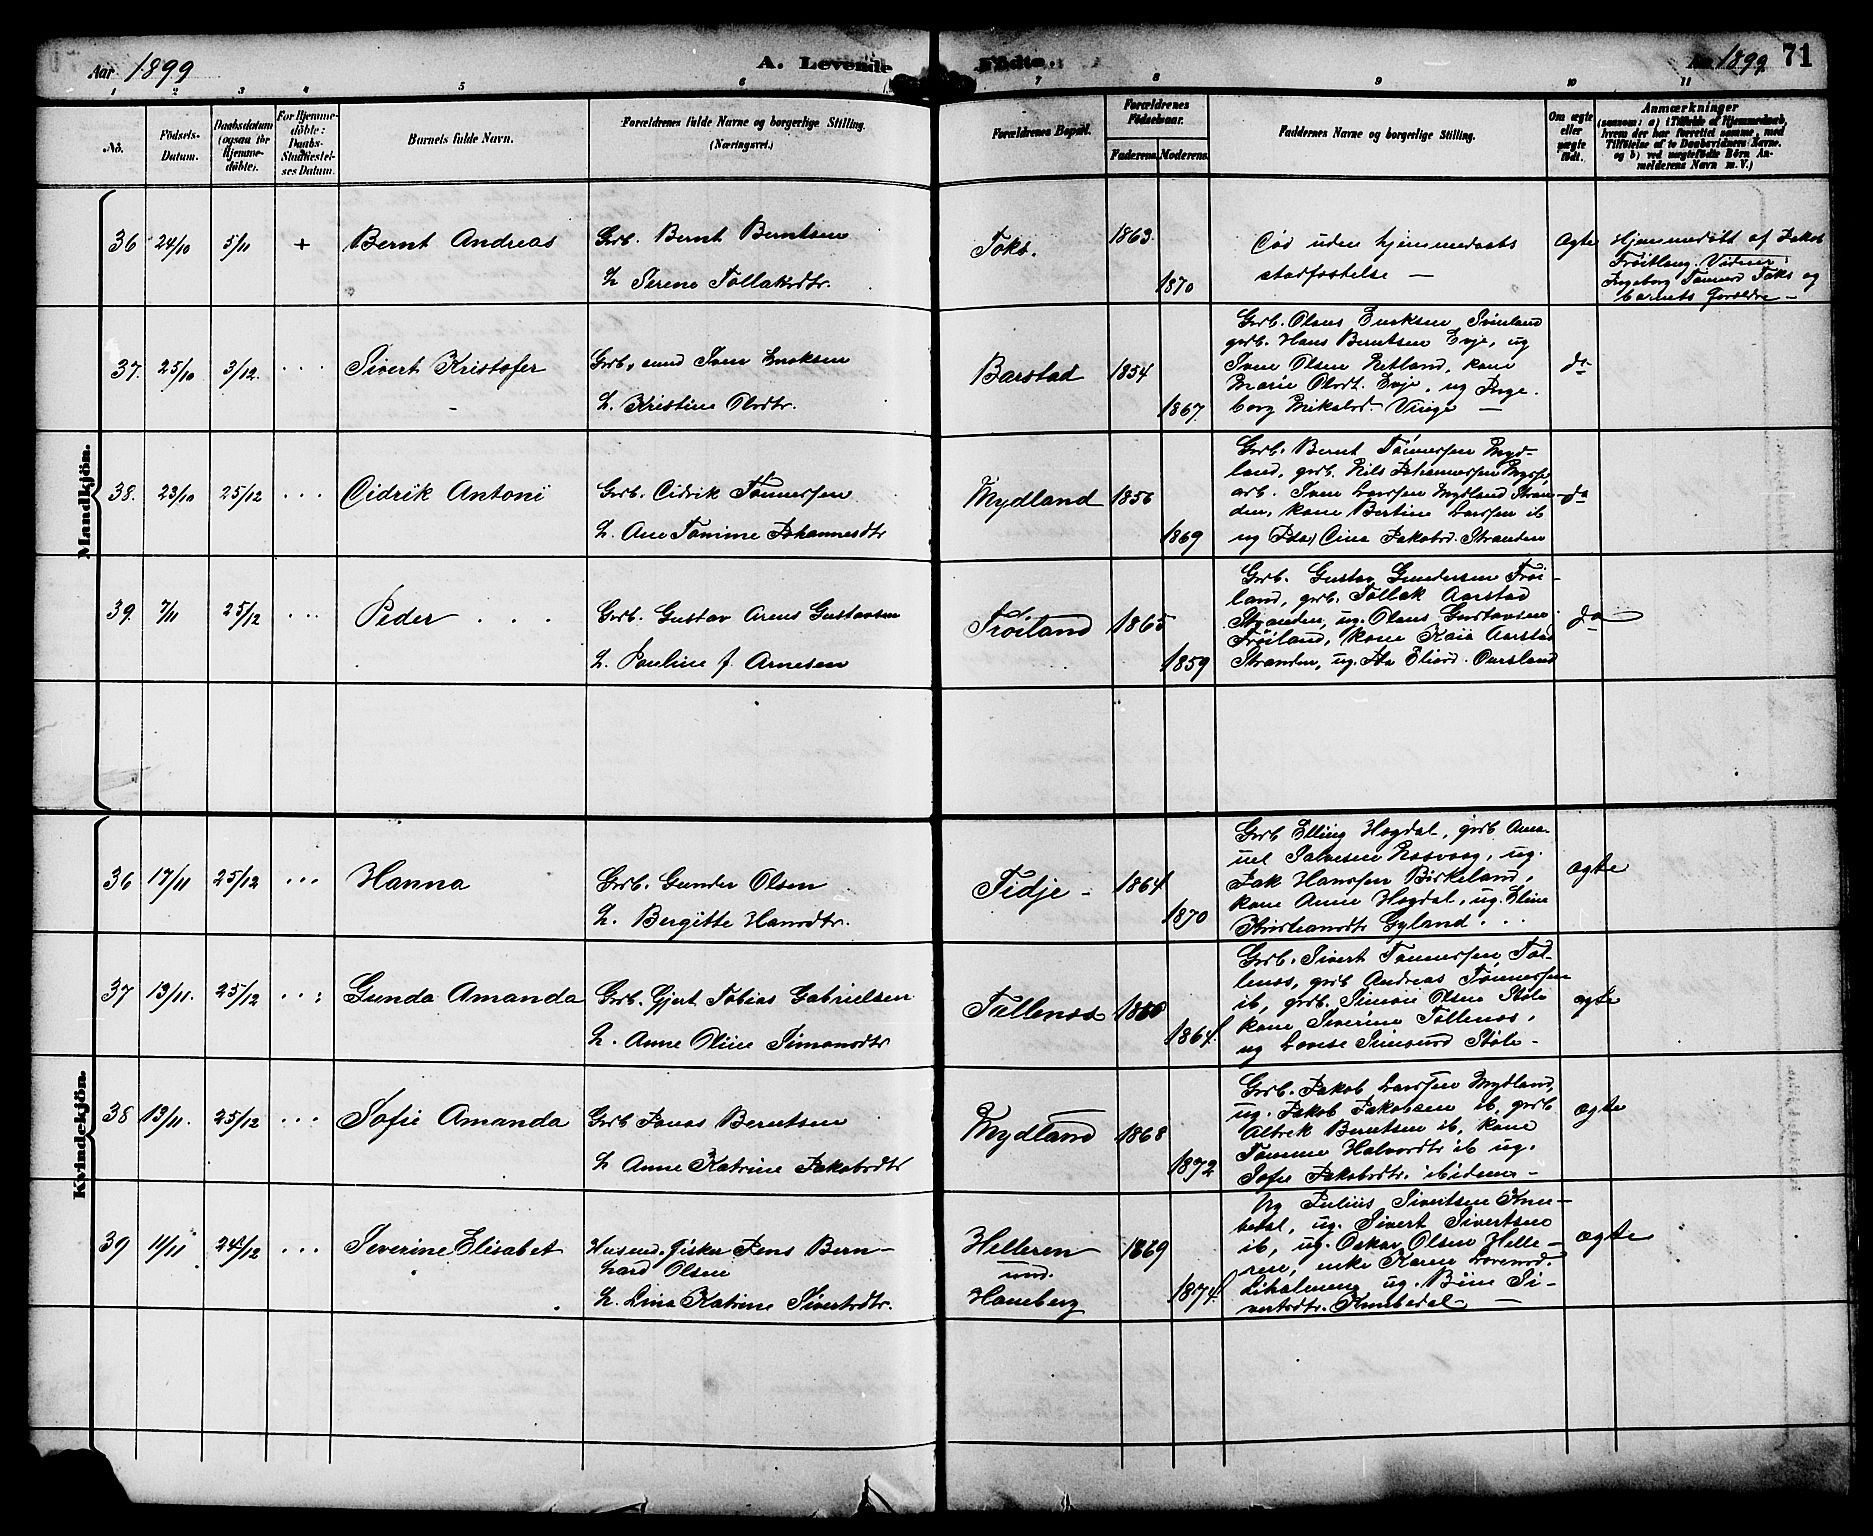 Aar 1899
A. Levende Födte.
Aar 1899
71
1 2 3 4 5 6 7 8 9 10 11
No.
Födsels-
Datum.
Daabsdatum
(ogsaa for
Hjemme-
döbte).
For Hjemme-
döbte:
Daabs-
Stadfæstel-
ses Datum.
Barnets fulde Navn.
Forældrenes fulde Navne og borgerlige Stilling.
(Næringsvei.)
Forældrenes Bopæl.
Forældrenes
Födselsaar.
Faderens. Moderens.
Faddernes Navne og borgerlige Stilling.
Om ægte
eller
uægte
födt.
Anmærkninger
(saasom: a) i Tilfælde af Hjemmedaab,
hvem der har forrettet samme, med
Tilföielse af to Daabsvidners Navne.
og b) ved uægtefödte Börn An-
melderens Navn m. V.)
Mandkjön.
36 24/10 5/11 + Bernt Andreas
Grb. Bernt Berntsen
H. Serene Tollaksdtr.
Toks.
1863.
1870
Död uden hjemmedaabs
stadfæstelse —
ægte
Hjemmedöbt af Jakob
Fröitlang. Vidner:
Ingeborg Tønnesd Toks og
barnets Forældre —
37. 25/10 3/12. . . . Sivert Kristofer
Grb. Sven Enoksen
H. Kristine Olsdtr.
Barstad
1854
1867.
Grb. Olaus Enoksen Svinland
grb. Hans Berntsen Evje, ug
Sven Olsen Netland, kone
Marie Olsdt. Evje, ug Inge-
borg
do
38. 23/10 25/12 . . . Cidrik Antoni
Grb. Cidrik Tønnessen
H. Ane Tomine Johannesdtr
Mydland
1856
1869
Grb. Bernt Tønnessen Myd-
land, grb. Nils Johannessen
arb. Sven Larssen Mydland Stran-
den, kone Bertine Larssen ib
ug Ida Cina Jakobsd. Stranden
do
39. 7/11 25/12 . . . Peder . . .
Grb. Gustav Arens Gustavsen
H. Pauline J. Arnesen
Fröiland
1865
1859
Grb. Gustav Gundersen Fröi-
land, grb. Tollak Aarstad
Stranden, ug. Olaus Gustavsen
Fröiland, kone Kaia Aarstad
Stranden, ug. Ida Eliasd.
do
Kvindekjön.
36 17/11 25/12 . . . Hanna
Grb. Gunder Olsen
H. Bergitte Hansdtr.
Tidje -
1864
1870
Grb Elling Hogdal, grb Ama-
uel Salvesen Rosvaag, ug.
Jak Hanssen Birkeland,
kone Anne Hogdal, ug. Eline
Kristiansdtr Gyland . .
ægte
37 13/11. 25/12 . . . Gunda Amanda
Grb. Gjert Tobias Gabrielsen
H. Anne Oline Simonsdtr
Tallenæs
1864.
Grb. Sivert Tønnessen Tal-
lenæs, grb Andreas Tønnessen
ib, grb. Simon Olsen Støle
kone Siverine Tallenæs,
ug Lovise Simonsd Støle -
ægte
38 13/11. 25/12 . . . Sofie Amanda
Grb Jonas Berntsen
H Anne Katrine Jakobsdtr
Mydland
1868
1872
Grb. Jakob Larssen Mydland,
ug. Jakob Jakobsen ib, grb.
Albrek Berntsen ib, kone
Tomine Halvorsdtr ib ug.
Sofie Jakobsdtr. ibidem -
ægte
39 11/11 24/12 . . . Severine Elisabet
Husmd. Fisker Jens Bern-
hard Olsen
H. Lina Katrine Sivertsdtr.
Helleren
und.
Haneberg
1869
1874.
Ug Julius Sivertsen Knu-
bedal, ug. Sivert Sivertsen
ib, ug. Oskar Olsen Helle-
ren, enke Karen Lovensd.
ug. Bine Si-
vertsdtr. Knubedal —
ægte